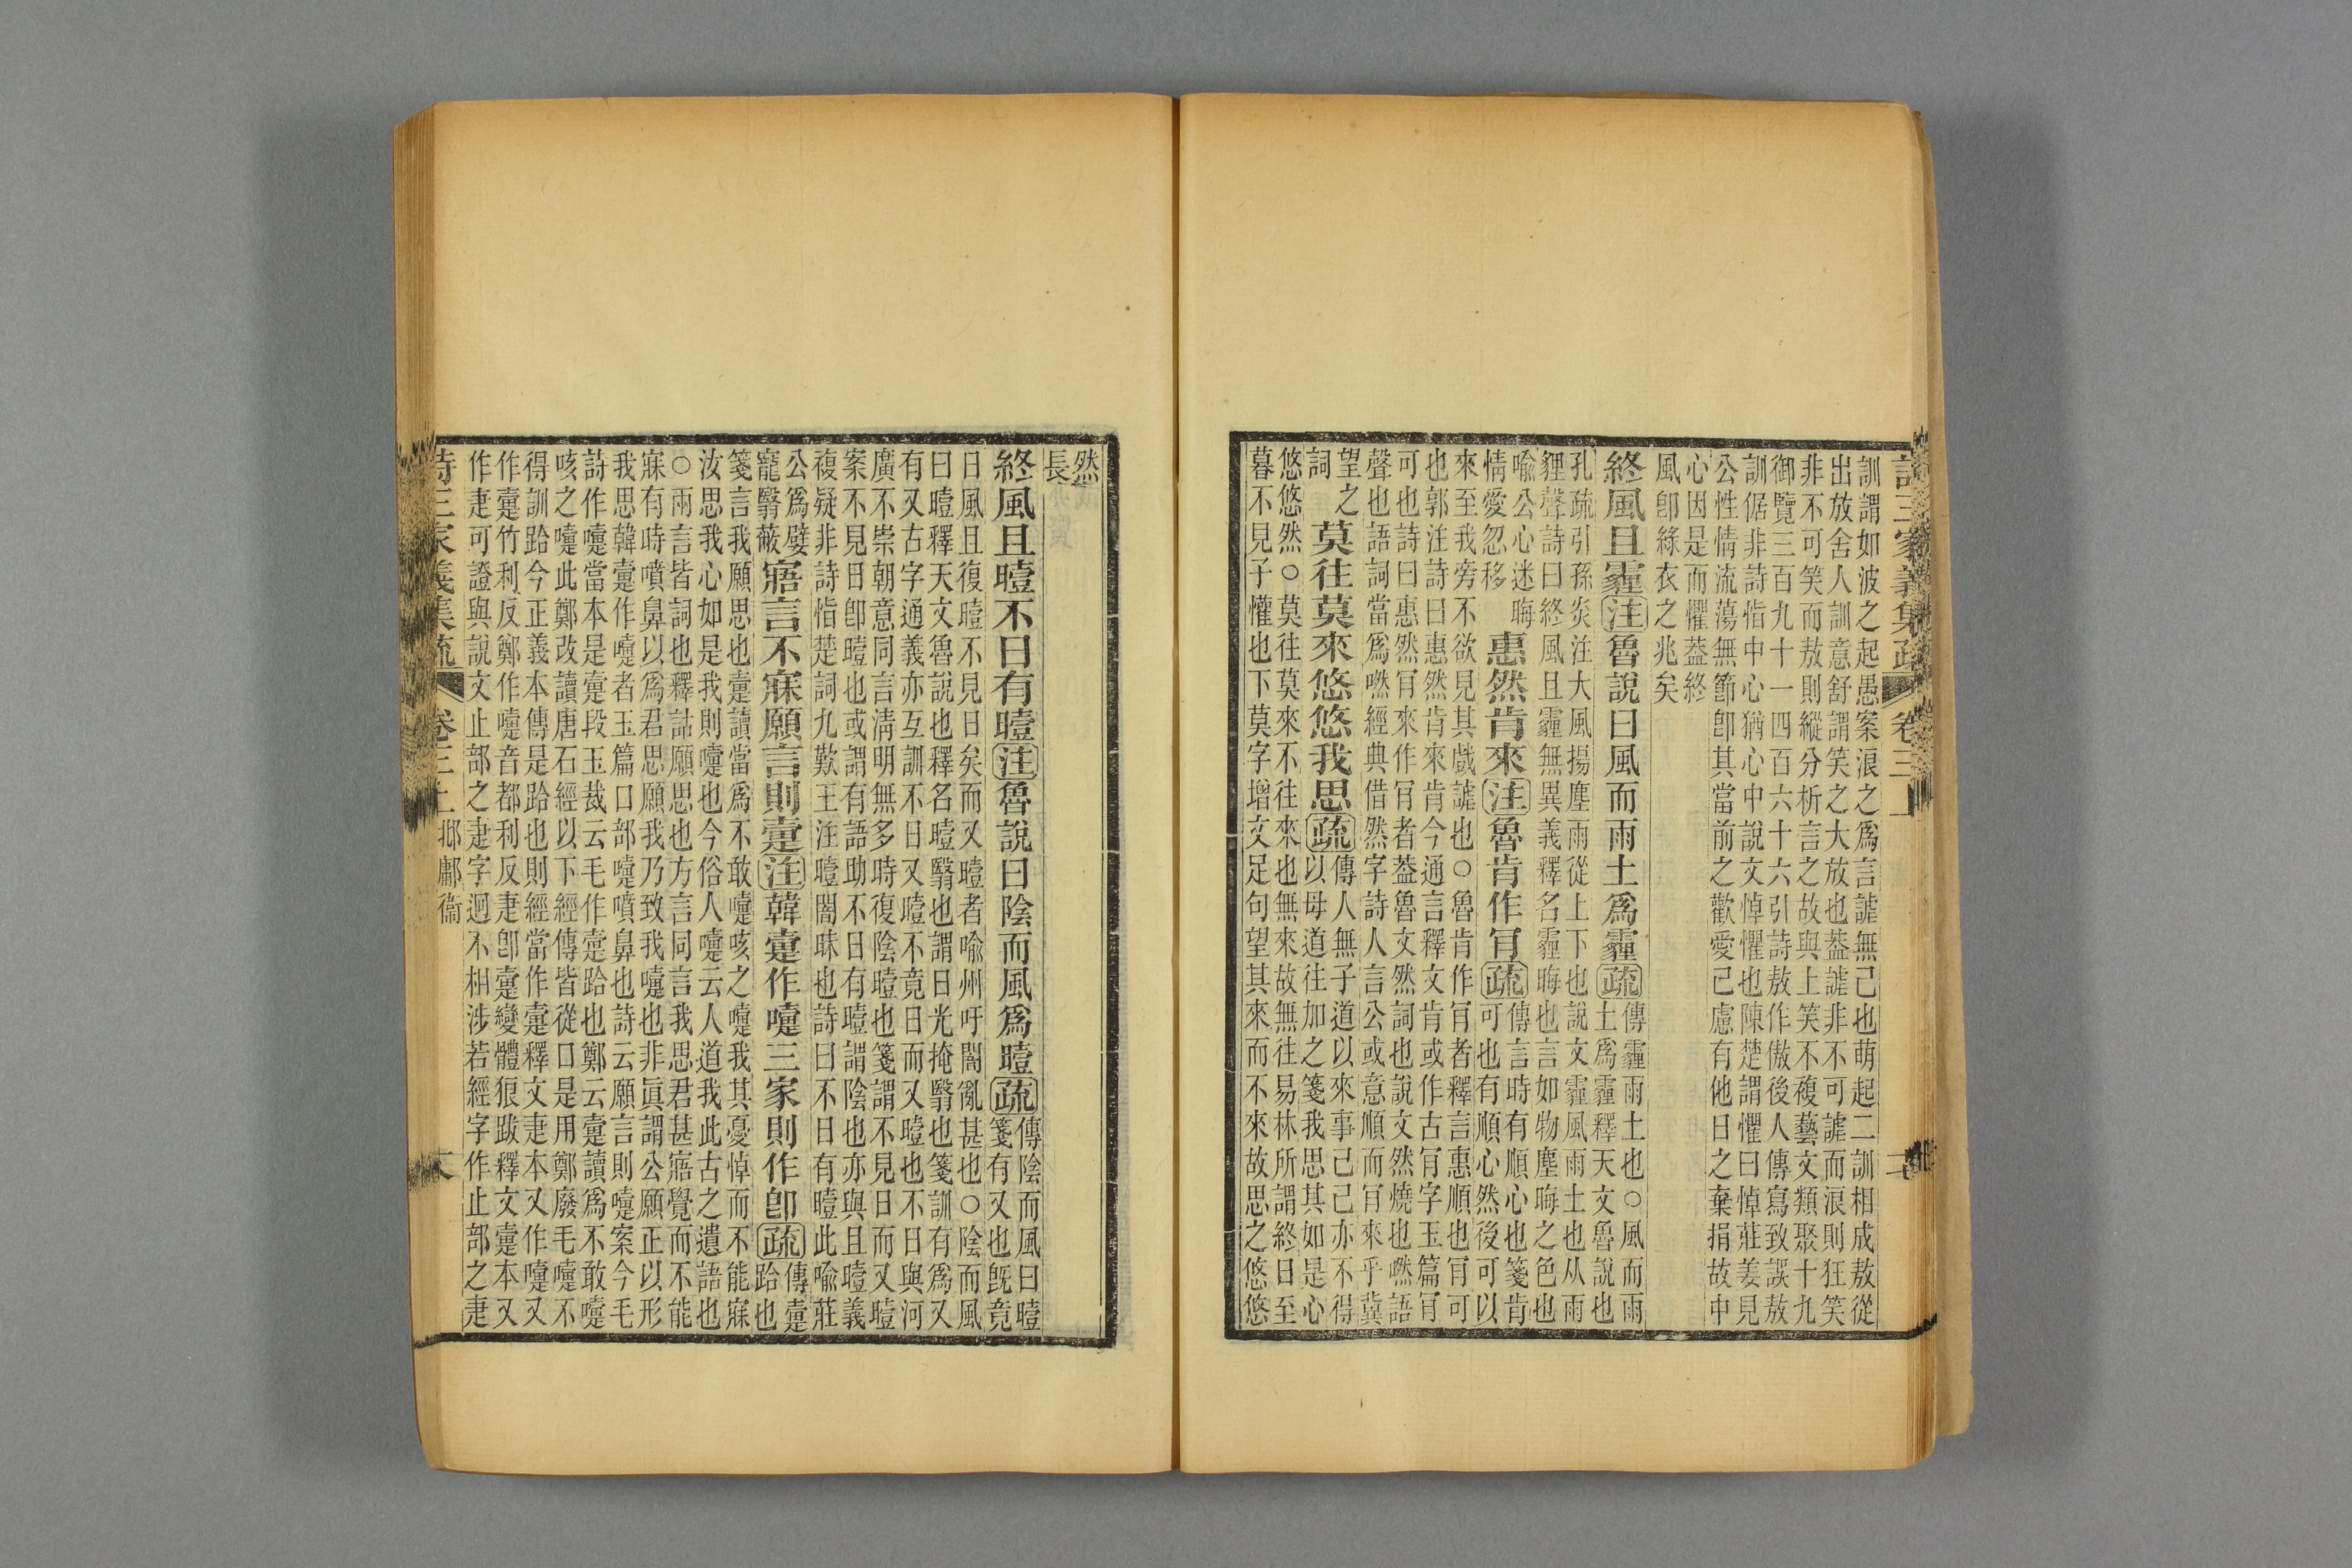 詩三家義集疏 卷三上
訓謂如波之起愚案浪之爲言謔無已也萌起二訓相成敖從
出放舍人訓意舒謂笑之大放也葢謔非不可謔而浪則狂笑
非不可笑而敖則縱分析言之故與上笑不複藝文類聚十九
御覽三百九十一四百六十六引詩敖作傲後人傳寫致誤敖
訓倨非詩恉中心猶心中說文悼懼也陳楚謂懼曰悼莊姜見
公性情流蕩無節卽其當前之歡愛已慮有他日之棄捐故中
心因是而懼葢終
風卽綠衣之兆矣
終風且霾注魯說曰風而雨土爲霾疏
傳霾雨土也○風而雨
土爲霾釋天文魯說也
孔疏引孫炎注大風揚塵雨從上下也說文霾風雨土也从雨
貍聲詩曰終風且霾無異義釋名霾晦也言如物塵晦之色也
喩公心迷晦
情愛忽移
惠然肯來注魯肯作肎疏
傳言時有順心也箋肯
可也有順心然後可以
來至我旁不欲見其戲謔也○魯肯作肎者釋言惠順也肎可
也郭注詩曰惠然肯來肯今通言釋文肯或作古肎字玉篇肎
可也詩曰惠然肎來作肎者葢魯文然詞也說文然燒也嘫語
聲也語詞當爲嘫經典借然字詩人言公或意順而肎來乎冀
望之
詞
莫往莫來悠悠我思疏
傳人無子道以來事己己亦不得
以母道往加之箋我思其如是心
悠悠然○莫往莫來不往來也無來故無往易林所謂終日至
暮不見子懽也下莫字增文足句望其來而不來故思之悠悠
然
長
終風且曀不日有曀注魯說曰陰而風爲曀疏
傳陰而風曰曀
箋有又也旣竟
日風且復曀不見日矣而又曀者喩州吁闇亂甚也○陰而風
曰曀釋天文魯說也釋名曀翳也謂日光掩翳也箋訓有爲又
有又古字通義亦互訓不日又曀不竟日而又曀也不日與河
廣不崇朝意同言淸明無多時復陰曀也箋謂不見日而又曀
案不見日卽曀也或謂有語助不日有曀謂陰也亦與且曀義
複疑非詩恉楚詞九歎王注曀闇昧也詩曰不日有曀此喩莊
公爲嬖
寵翳蔽
寤言不寐願言則疐注韓疐作嚏三家則作卽疏
傳疐
跲也
箋言我願思也疐讀當爲不敢嚏咳之嚏我其憂悼而不能寐
汝思我心如是我則嚏也今俗人嚏云人道我此古之遺語也
○兩言皆詞也釋詁願思也方言同言我思君甚寤覺而不能
寐有時噴鼻以爲君思願我乃致我嚏也非眞謂公願正以形
我思韓疐作嚏者玉篇口部嚏噴鼻也詩云願言則嚏案今毛
詩作嚏當本是疐段玉裁云毛作疐跲也鄭云疐讀爲不敢嚏
咳之嚏此鄭改讀唐石經以下經傳皆從口是用鄭廢毛嚏不
得訓跲今正義本傳是跲也則經當作疐釋文疌本又作嚏又
作疐竹利反鄭作嚏音都利反疌卽疐變體狼跋釋文疐本又
作疌可證與說文止部之疌字迥不相涉若經字作止部之疌
詩三家義集疏 卷三上 邶鄘衞